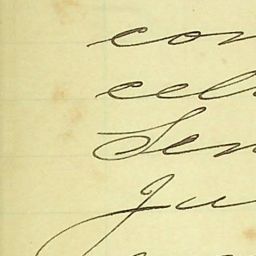 con
cel
Sen
Ju